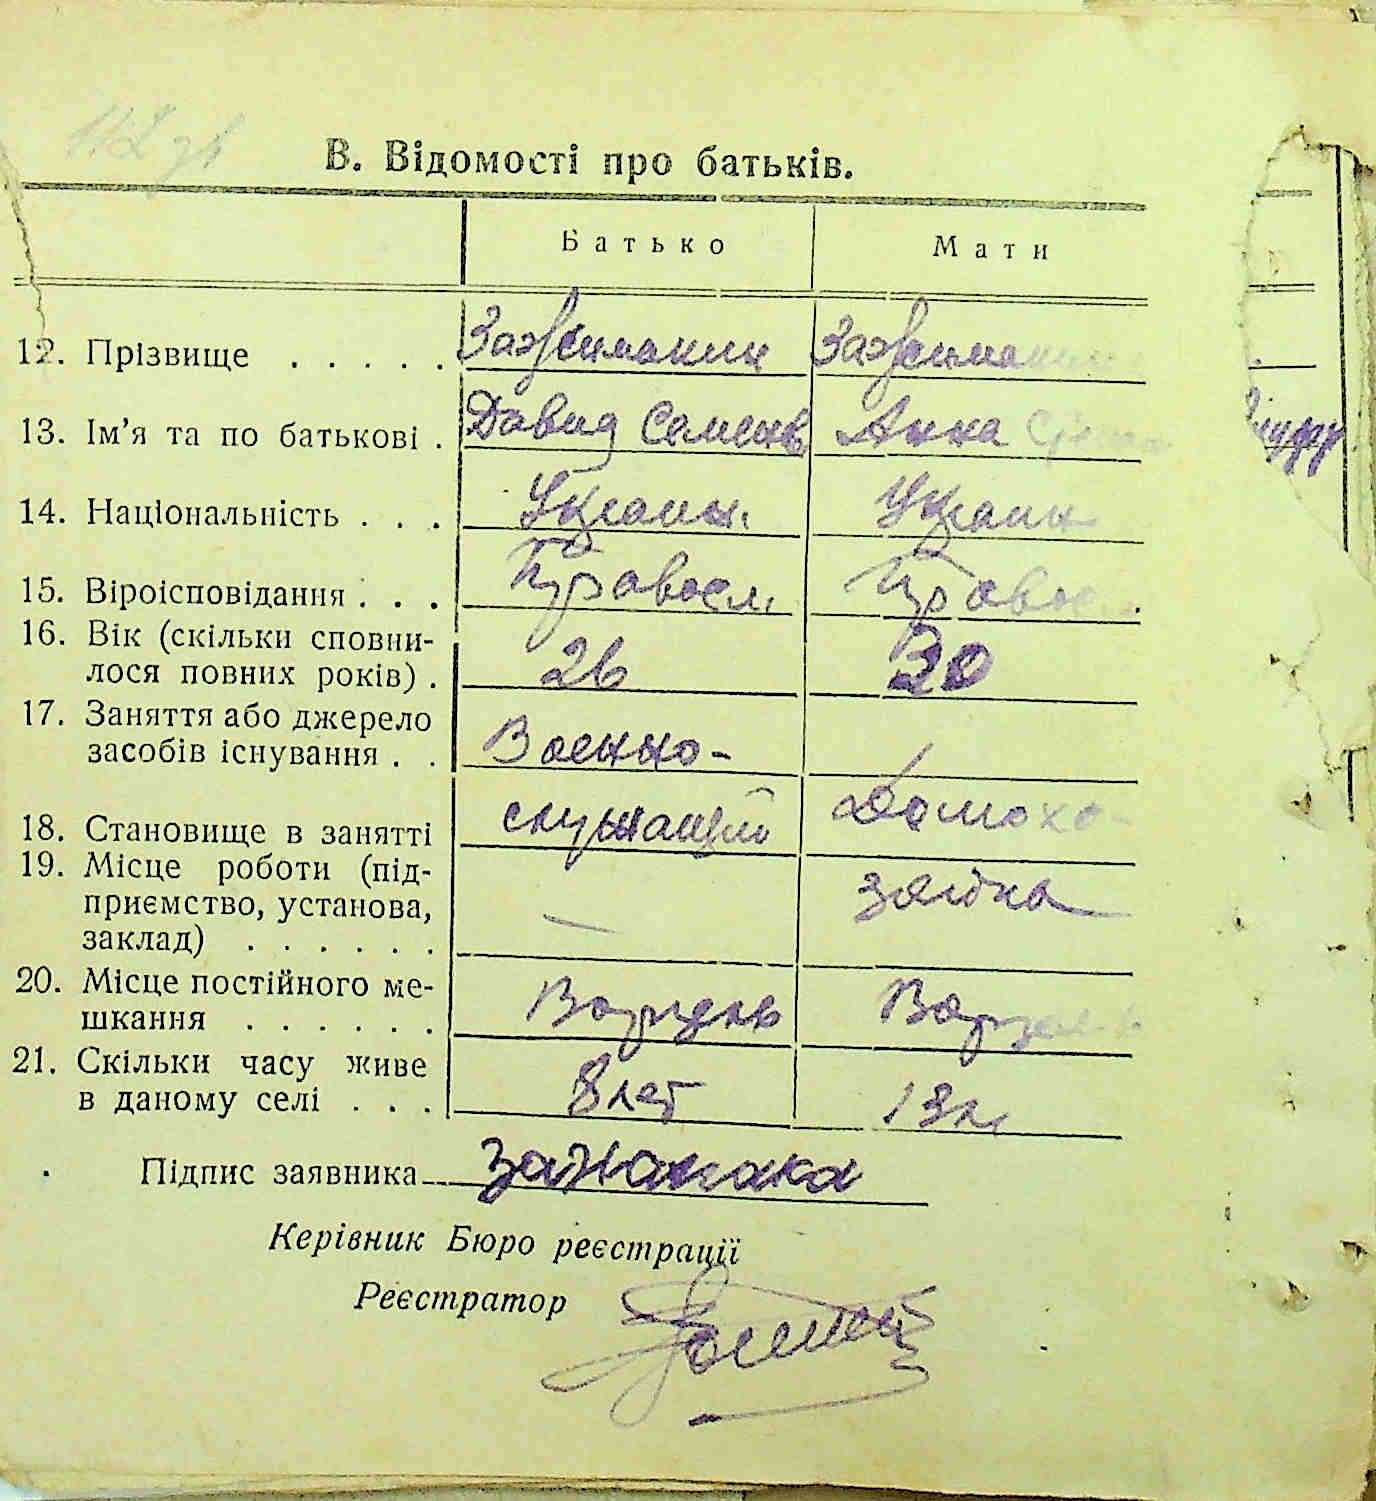 В. Відомості про батьків.
Батько Мати
12. Прізвище . . . . .
13. Ім’я та по батькові . Давид Семенв Анна
14. Національність . . . Украин. Украин
15. Віроісповідання . . . Правосл. Правосл.
16. Вік (скільки сповни-
лося повних років) . 26 30
17. Заняття або джерело
засобів існування . . Военно-
18. Становище в занятті служащий Домохо-
19. Місце роботи (під-
приємство, установа, зяйка
заклад) . . . . . . —
20. Місце постійного ме-
шкання . . . . . .
21. Скільки часу живе
в даному селі . . . 8 лет 13 л.
Підпис заявника
Керівник Бюро реєстрації
Реєстратор